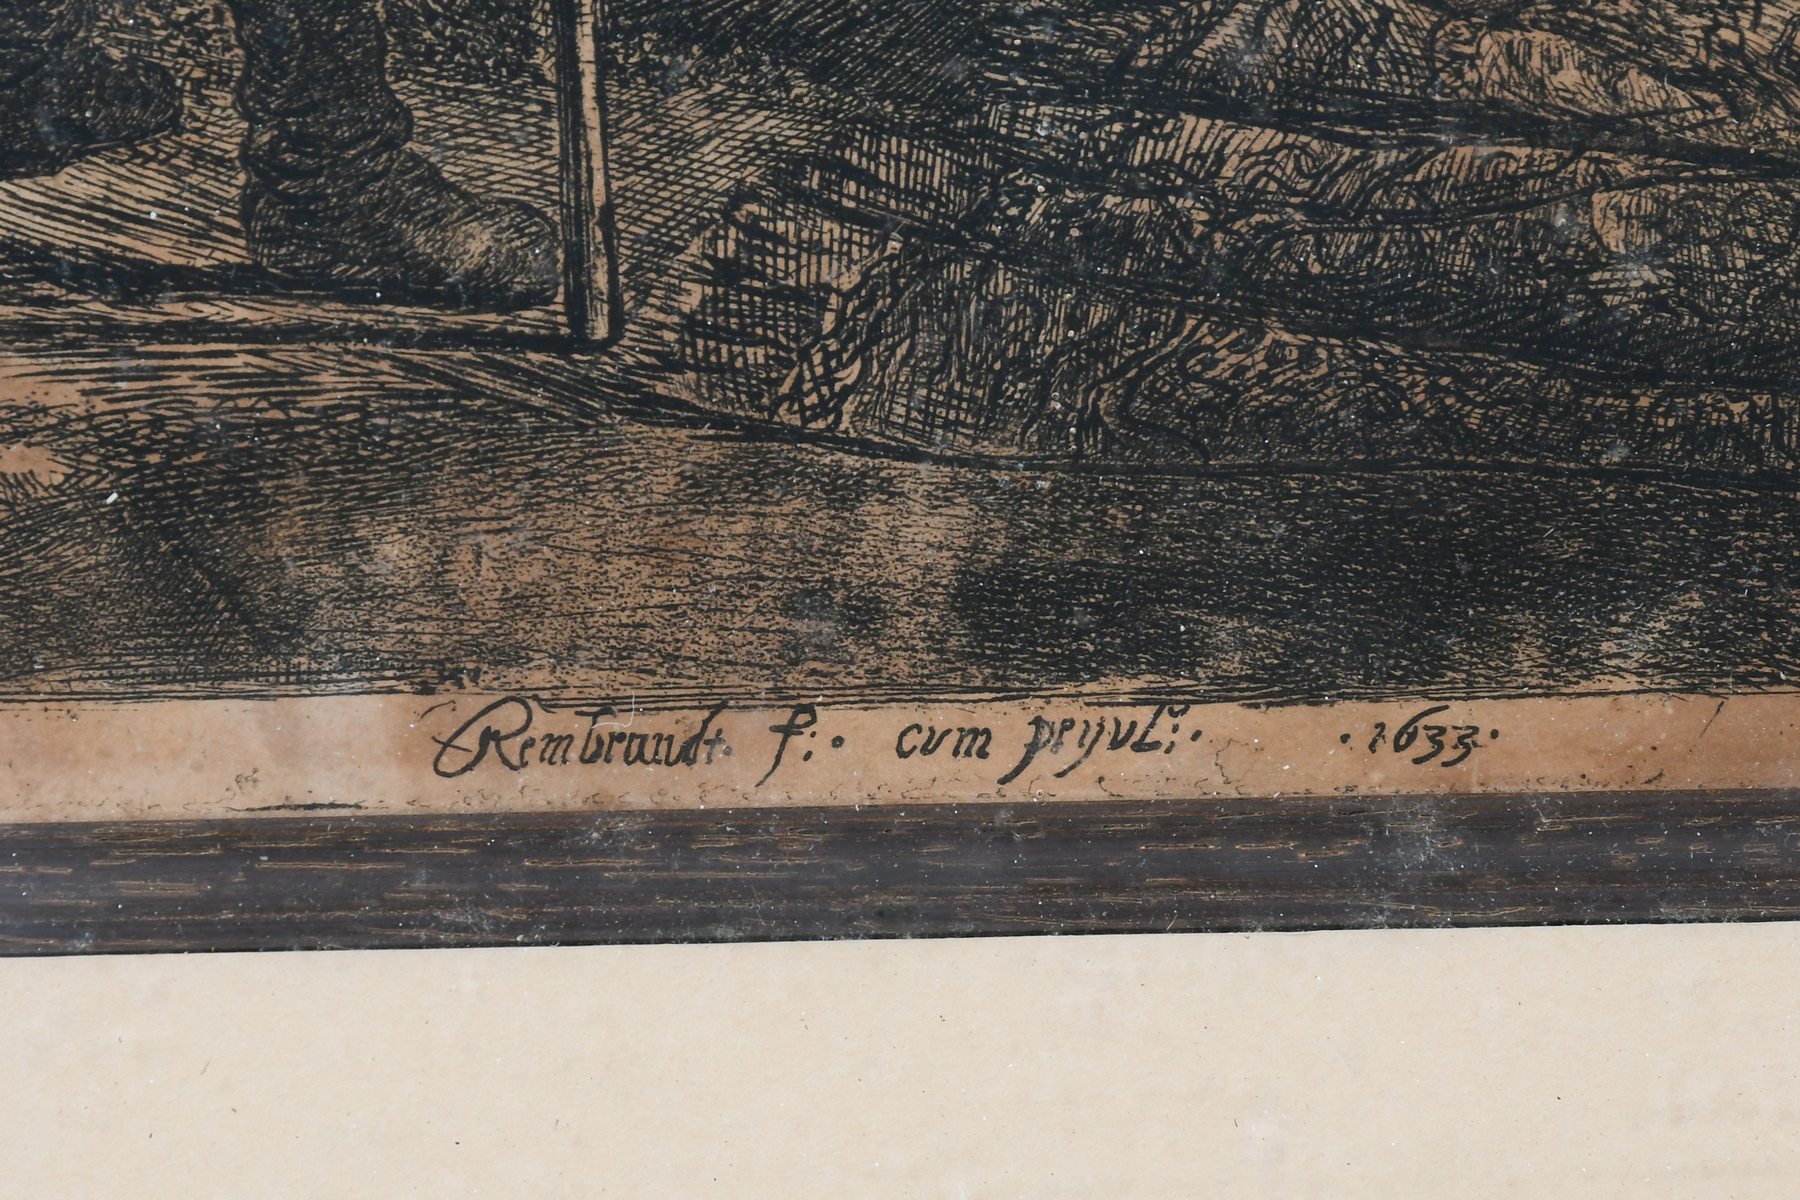 Rembrandt. f: · cum pryvl:· ·1633·